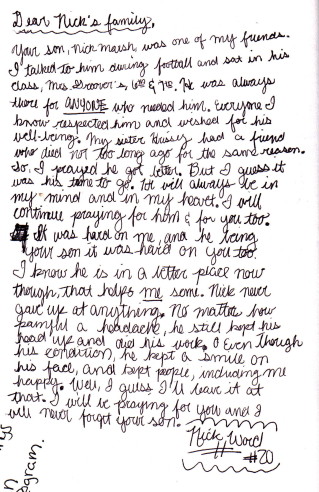 Dear Nick's family,
Your son, Nick Marsh, was one of my friends.
I talked to him during football and sat in his
class, Mrs. Groover's, 6th & 7th. He was always
there for ANYONE who needed him. Everyone I
know respected him and wished for his
well-being. My sister had a friend
who died not too long ago for the same reason.
So, I prayed he got better. But I guess it
was his time to go. He will always be in
my mind and in my heart. I will
continue praying for him & for you too.
It was hard on me, and he being
your son it was hard on you too.
I know he is in a better place now
though, that helps me some. Nick never
gave up at anything. No matter how
painful a headache, he still kept his
head up and did his work. Even though
his condition, he kept a smile on
his face, and kept people, including me
happy. Well, I guess I'll leave it at
that. I will be praying for you and I
will never forget your son.
Nick Word
#20